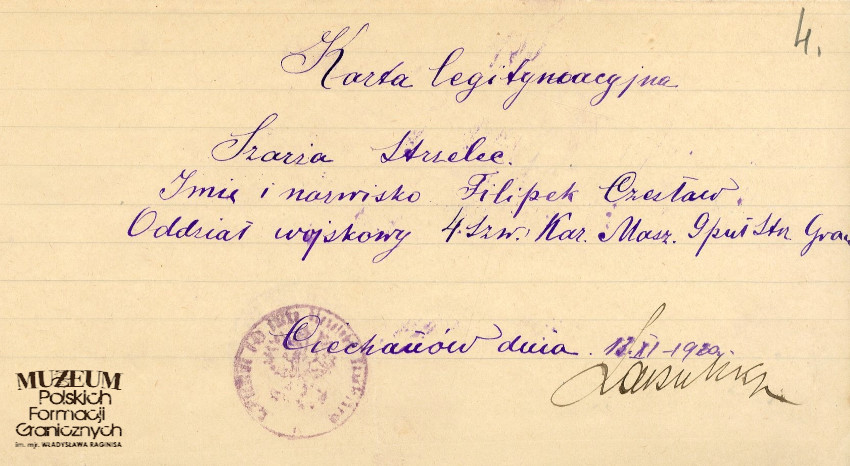 4.
Karta legitymacyjna
Szarża Strzelec.
Imię i nazwisko Filipek Czesław.
Oddział wojskowy 4. Szw. Kar. Masz. 9 puł Str. Gran
Ciechanów dnia 12. XI - 1920.
MUZEUM
Polskich
Formacji
Granicznych
im. mjr. WŁADYSŁAWA RAGINISA